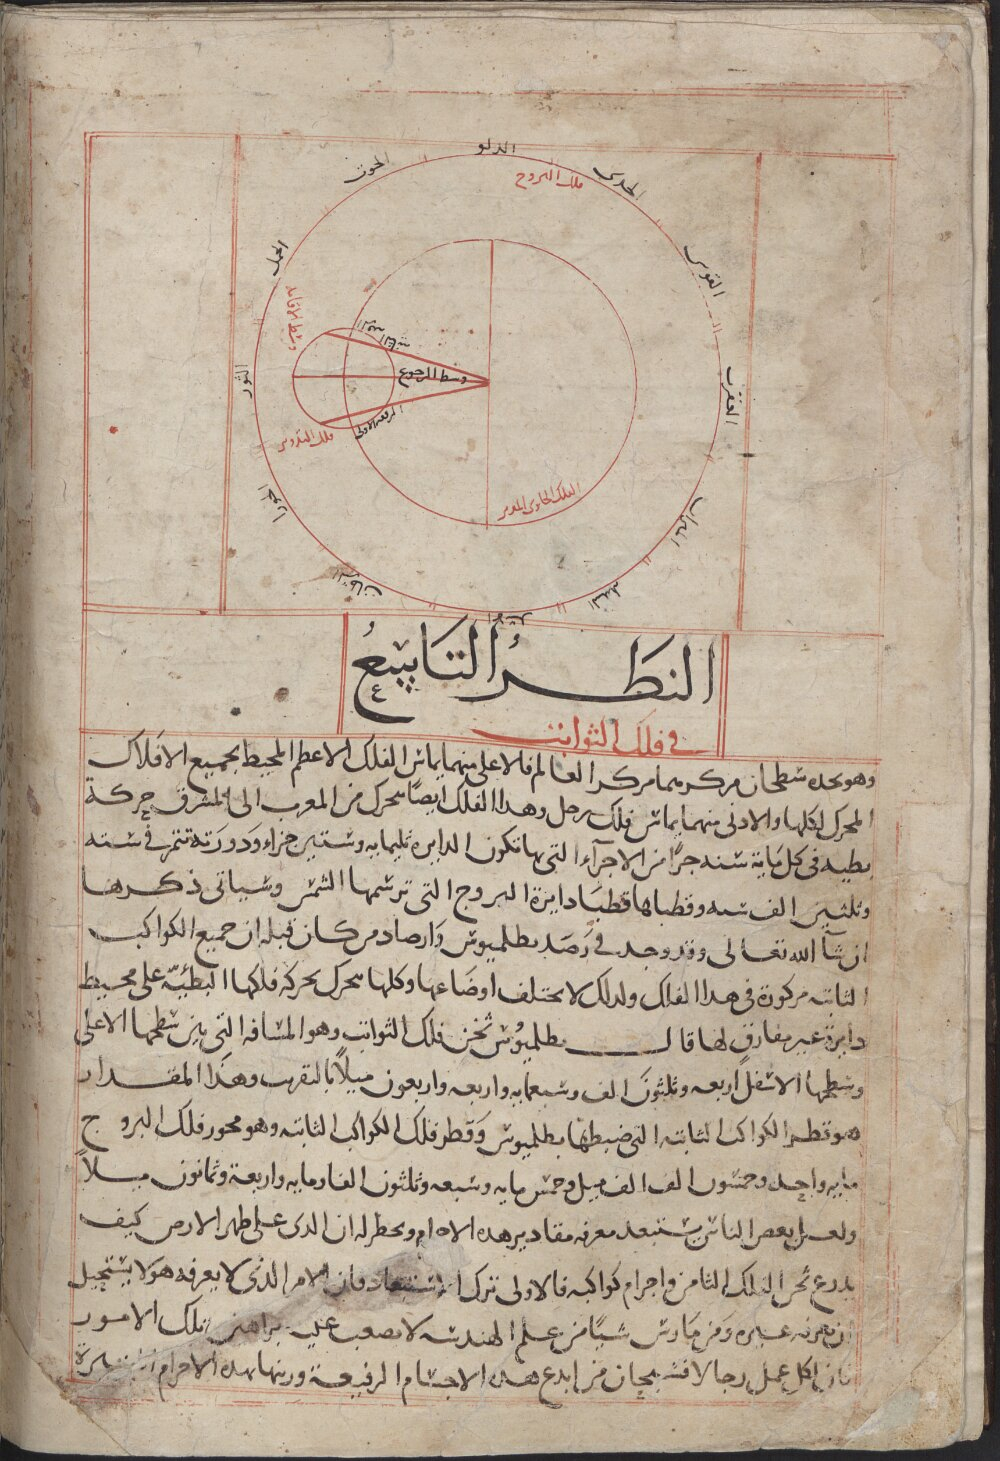 الدلو
الجدى
الحوت
فلك البروج
القوس
الحمل
العقرب
الثور
وسط الرجوع
فلك التدوير
الفلك الحاوى المدير
الميزان
الجوزا
السرطان
السنبلة
الاسد
النظر التاسع
فى فلك الثوابت
وهو يحده سطحان مركزهما مركز العالم فالاعلى منهما يماس الفلك الاعظم المحيط بجميع الافلاك
المحرك لكلها والادنى منهما يماس فلك زحل وهذا الفلك ايضا يتحرك من المغرب الى المشرق حركة
بطيه فى كل ماية سنه جزا من الاجزاء التى بها تكون الدايرة ثلثمايه وستين جزاء ودورته تتم فى سته
وثلثين الف سنه وقطباها قطبا دايرة البروج التى ترسمها الشمس وسياتى ذكرها
ان شاء الله تعالى وقد وجد فى رصد بطلميوس وارصاد من كان قبله ان جميع الكواكب
الثابته مركوزة فى هذا الفلك ولذلك لا يختلف اوضاعها وكلها تتحرك بحركة فلكها البطئيه على محيط
دايرة غير مفارق لها قال بطلميوس ثخن فلك الثوابت وهو المسافه التى بين سطحها الاعلى
وسطحها الاسفل اربعه وثلثون الف وسبعمايه واربعه واربعون ميلا بالتقريب وهذا المقدار
هو قطر الكواكب الثابته التى ضبطها بطلميوس وقطر فلك الكواكب الثابته وهو محور فلك البروج
مايه واحد وخمسون الف الف ميل وخمس مايه وسبعه وثلثون الفا ومايه واربعة وثمانون ميلا
ولعل بعض الناس يستبعد معرفه مقادير هذه الاجرام ويخطر له ان الذى على ظهر الارض كيف
يذرع ثخن الفلك الثامن واجرام كواكبه فالاولى ترك الاستبعاد فان الامر الذى لا يعرفه هو لا يستحيل
ان يعرفه غيره ومن مارس شيا من علم الهندسه لا يصعب عليه براهين تلك الامور
فان لكل عمل رجالا فسبحان من ابدع هذه الاجسام الرفيعة وزينها بهذه الاجرام